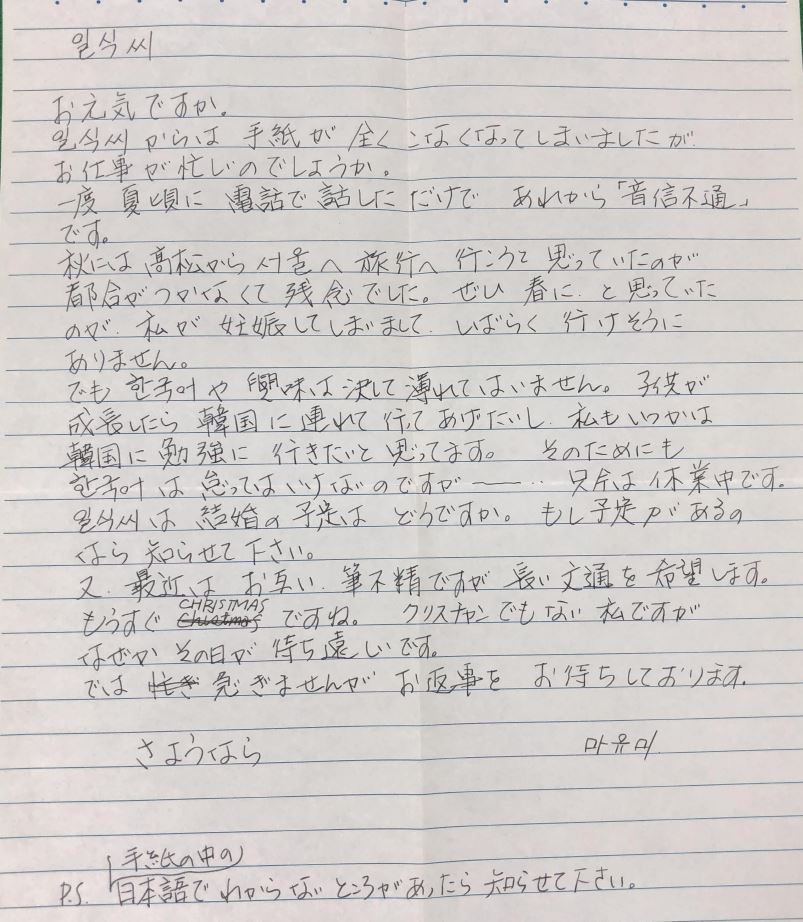 일식씨
お元気ですか。
일식씨からは 手紙が 全く こなくなってしまいましたが
お仕事が忙しいのでしょうか。
一度 夏頃に 電話で 話しただけで あれから「音信不通」
です。
秋には 高松から 서울へ 旅行へ 行こうと 思っていたのが
都合がつかなくて 残念でした。ぜひ 春に と思っていた
のが 私が 妊娠してしまいまして しばらく 行けそうに
ありません。
でも 한국어や 興味は 決して 薄れてはいません。子供が
成長したら 韓国に 連れて 行って あげたいし 私もいつかは
韓国に 勉強に 行きたいと 思ってます。 そのためにも
한국어は 怠っては いけないのですが ―― ‥ 只今は 休業中です。
일식씨は 結婚の 予定は どうですか。もし 予定が あるの
なら 知らせて 下さい。
又、最近は お互い 筆不精ですが 長い 文通を 希望します。
もうすぐ CHRISTMAS ですね。 クリスチャンでもない 私ですが
なぜか その日が 待ち遠しいです。
では 急ぎませんが お返事を お待ちしております。
さようなら 마유미
手紙の中の
P.S. 日本語で わからない ところがあったら 知らせて下さい。